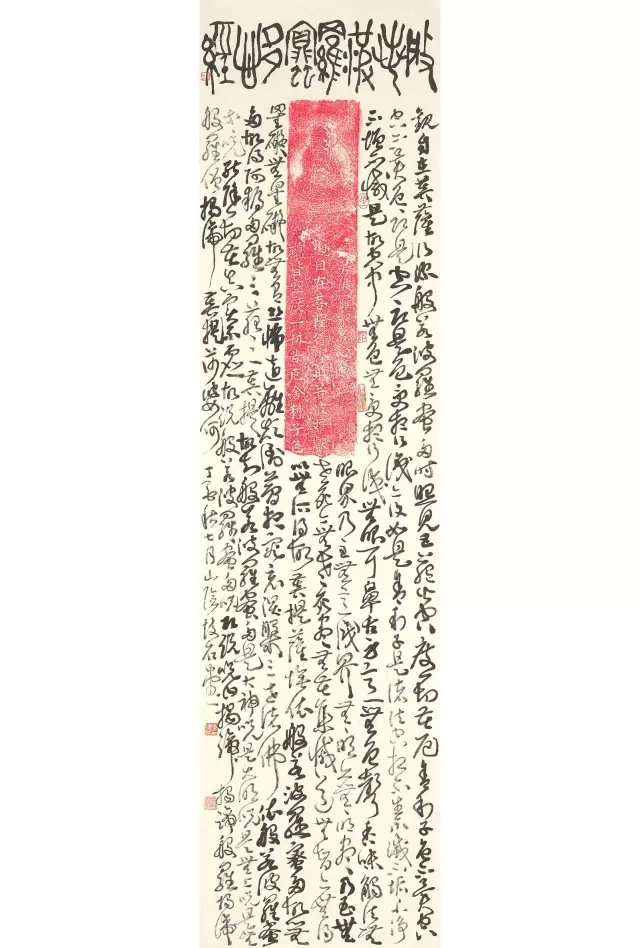 般若波羅蜜多心經
觀自在菩薩行深般若波羅蜜多時照見五蘊皆空度一切苦厄舍利子色不異空
空不異色色即是空空即是色受想行識亦復如是舍利子是諸法空相不生不滅不垢不淨
不增不減是故空中無色無受想行識無眼耳鼻舌身意無色聲香味觸法無
眼界乃至無意識界無無明亦無無明盡乃至無
老死亦無老死盡無苦集滅道無智亦無得
以無所得故菩提薩埵依般若波羅蜜多故心無
罣礙無罣礙故無有恐怖遠離顛倒夢想究竟涅槃三世諸佛依般若波羅蜜
多故得阿耨多羅三藐三菩提故知般若波羅蜜多是大神咒是大明咒是無上咒是無
等等咒能除一切苦真實不虛故說般若波羅蜜多咒即說咒曰揭諦揭諦般羅揭諦
般羅僧揭諦菩提薩婆訶 丁酉秋七月山陰
觀自在菩薩行深般若波羅蜜
皆空度一切苦厄舍利子色